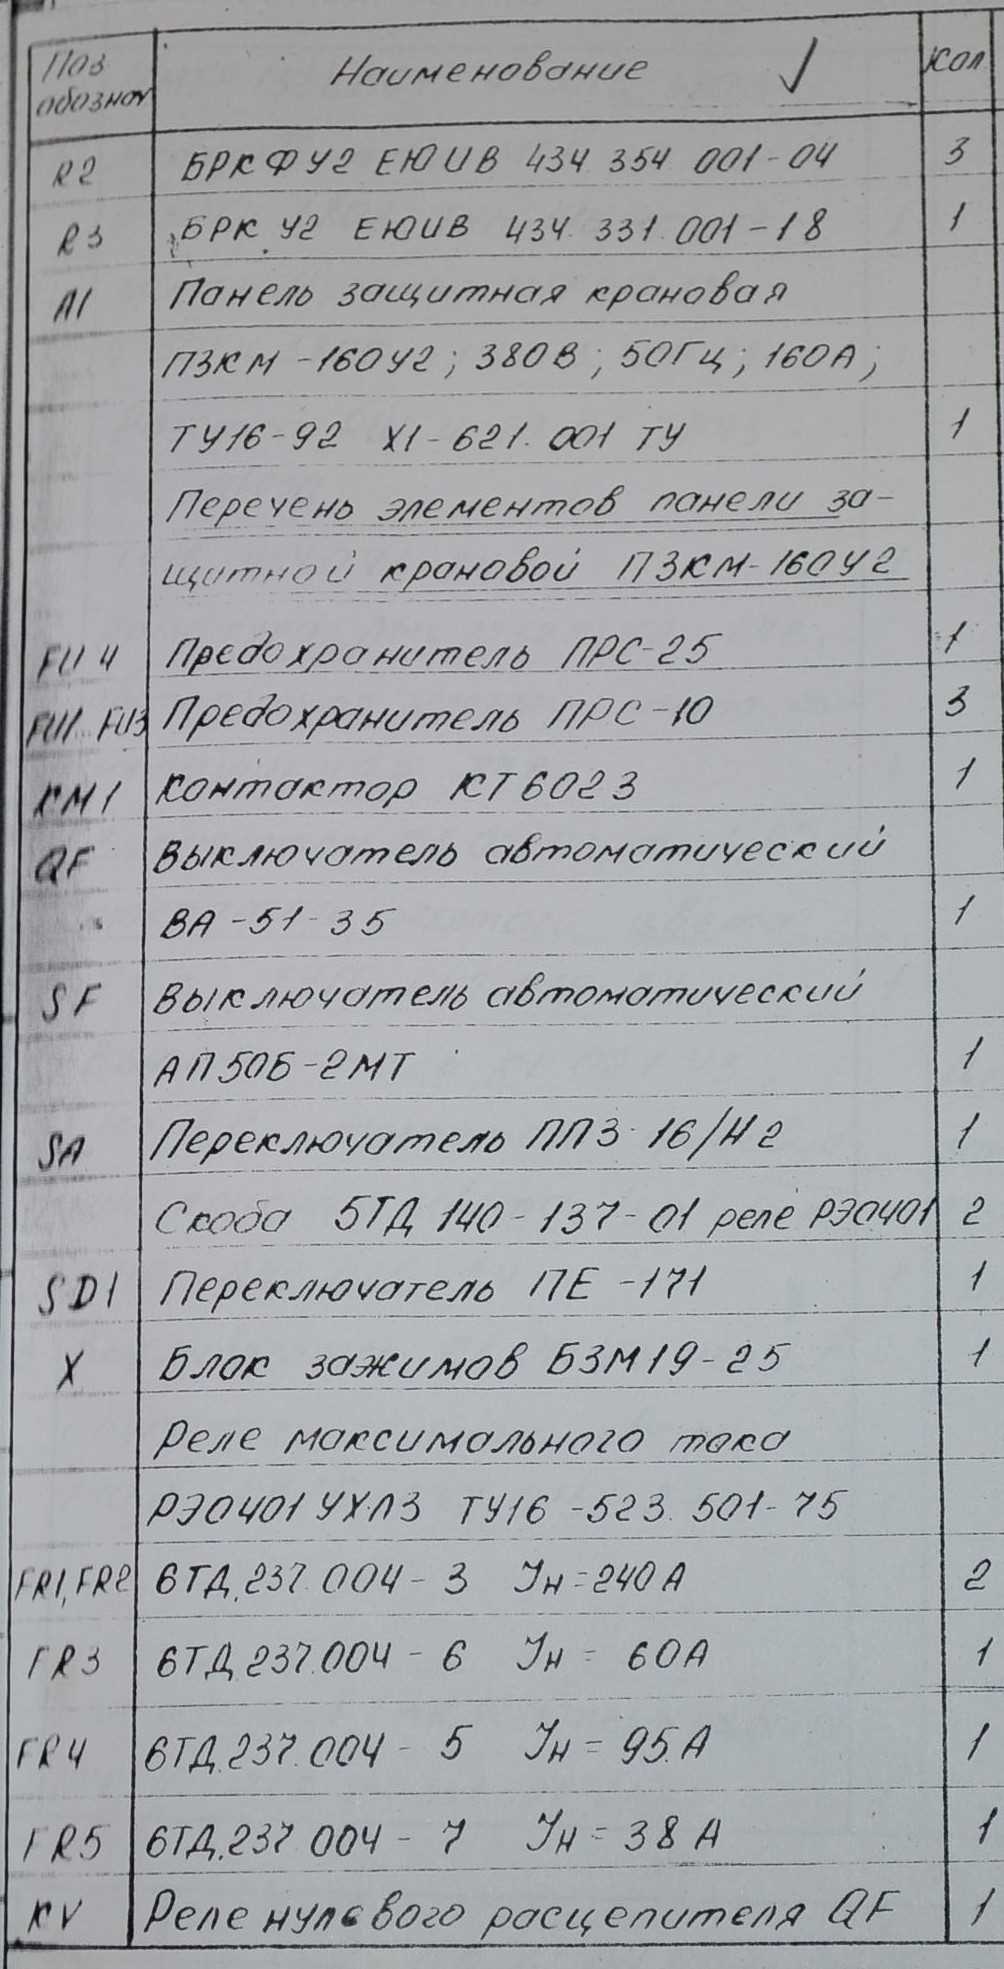 Поз обознач Наименование Кол
R2 БРКФУ2 ЕЮИВ 434 354 001-04 3
R3 БРК У2 ЕЮИВ 434.331.001-18 1
А1 Панель защитная крановая
ПЗКМ-160У2; 380В; 50Гц; 160А;
ТУ16-92 Х1-621.001 ТУ 1
Перечень элементов панели за-
щитной крановой ПЗКМ-160У2
FU4 Предохранитель ПРС-25 1
FU1...FU3 Предохранитель ПРС-10 3
КМ1 Контактор КТ6023 1
QF Выключатель автоматический
ВА-51-35 1
SF Выключатель автоматический
АП50Б-2МТ 1
SA Переключатель ПП3-16/Н2 1
Скоба 5ТД 140-137-01 реле РЭО401 2
SD1 Переключатель ПЕ-171 1
X Блок зажимов БЗМ19-25 1
Реле максимального тока
РЭО401 УХЛ3 ТУ16-523.501-75
FR1,FR2 6ТД.237.004-3 Iн=240А 2
FR3 6ТД.237.004-6 Iн=60А 1
FR4 6ТД.237.004-5 Iн=95А 1
FR5 6ТД.237.004-7 Iн=38А 1
KV Реле нулевого расцепителя QF 1